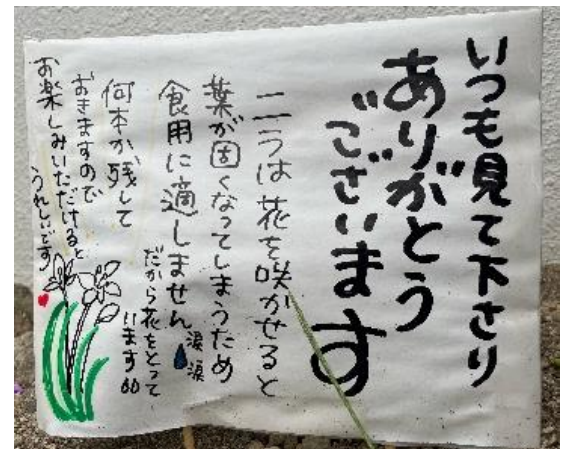 いつも見て下さり
ありがとう
ございます
ニラは花を咲かせると
葉が固くなってしまうため
食用に適しません 涙 涙
だから花をとって
います
何本か残して
おきますので
お楽しみいただけると
うれしいです